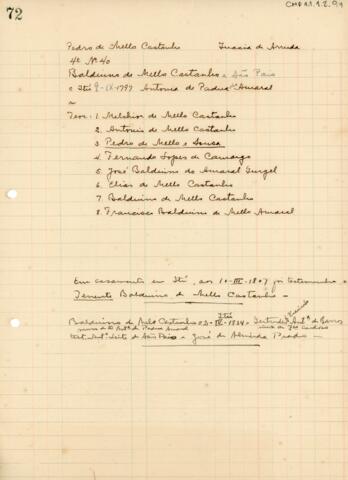 72
Pedro de Mello Castanho Inacia de Arruda
4º Nº 40
Balduino de Mello Castanho e São Paio
c Itú 9-IX-1797 Antonia de Padua Amaral
Teve: 1. Melchior de Mello Castanho
2. Antonio de Mello Castanho
3. Pedro de Mello e Sousa
4. Fernando Lopes de Camargo
5. José Balduino do Amaral Gurgel
6. Elias de Mello Castanho
7. Balduino de Mello Castanho
8. Francisco Balduino de Mello Amaral
Em casamento em Itú, aos 10-III-1807 foi testemunha o
Tenente Balduino de Mello Castanho
Balduino de Melo Castanho c Itú 23-IV-1824 Gertrudes de Barros
de Padua Amaral
Leite de São Paio e José de Almeida Prado